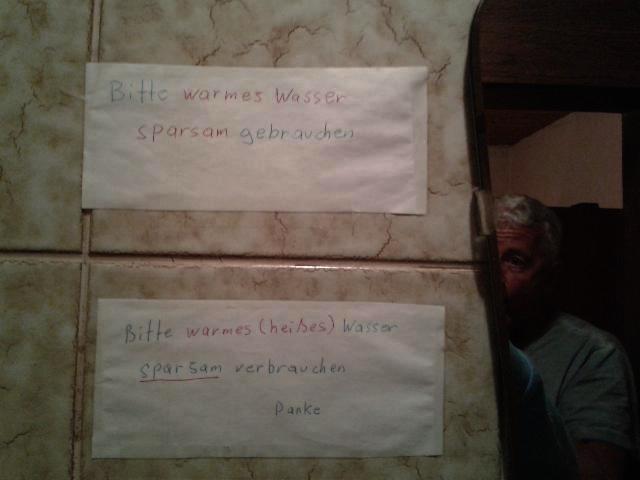 Bitte warmes Wasser
sparsam gebrauchen
Bitte warmes (heißes) Wasser
sparsam verbrauchen
Danke